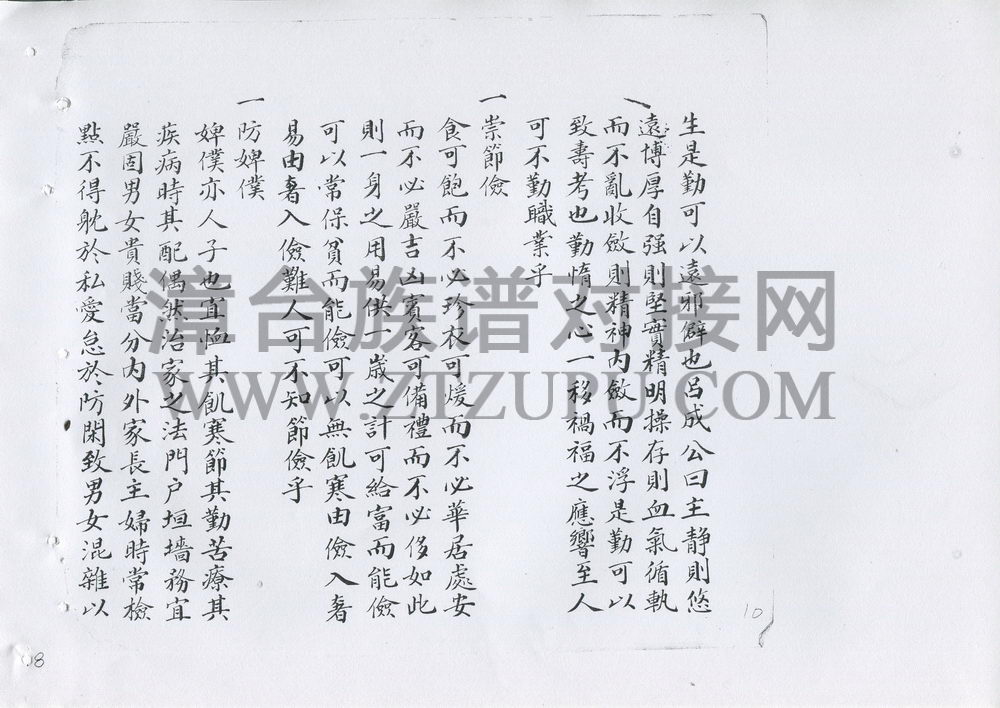 生是勤可以遠邪僻也呂成公曰主靜則悠
遠博厚自强則堅實精明操存則血氣循軌
而不亂收斂則精神內斂而不浮是勤可以
致壽考也勤惰之心一移禍福之應響至人
可不勤職業乎
一 崇節儉
食可飽而不必珍衣可煖而不必華居處安
而不必嚴吉凶賓客可備禮而不必侈如此
則一身之用易供一歲之計可給富而能儉
可以常保貧而能儉可以無飢寒由儉入奢
易由奢入儉難人可不知節儉乎
一 防婢僕
婢僕亦人子也宜恤其飢寒節其勤苦療其
疾病時其配偶然治家之法門户垣墻務宜
嚴固男女貴賤當分內外家長主婦時常檢
點不得躭於私愛怠於防閑致男女混雜以
漳台族谱对接网
WWW.ZTZUPU.COM
10
08